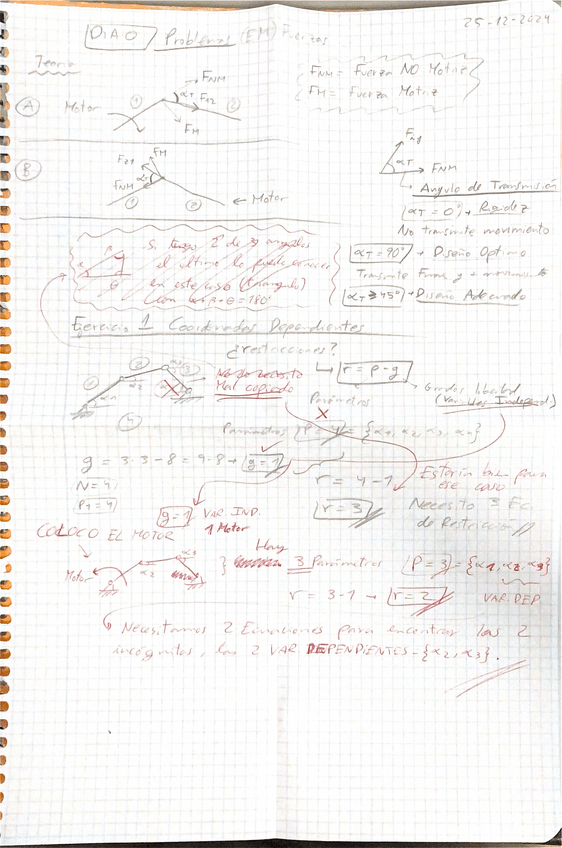 25-12-2024
DIA0 Problemas (EM) Fuerzas
Teoria
FNM = Fuerza NO Motriz
FM = Fuerza Motriz
A Motor 1 αT FNM F12 2
FM
B F21 FM αT FNM 1 2 ← Motor
αT FNM
Angulo de Transmisión
αT = 0° → Rigidez
No transmite movimiento
αT = 90° → Diseño Optimo
Transmite Fuerza y + movimiento
αT ≥ 45° → Diseño Adecuado
Si tengo 2 de 3 angulos
el último lo puedo conocer
en este caso (triangulo)
Ejercicio 1 Coordenadas Dependientes
¿restricciones?
r = p - g
Grados libertad
(Variables Independ.)
Parámetros
1 2 3 4 α1 α2
No lo necesito
Mal copiado
X
Parámetros P = 4 = {α1, α2, α3, α4}
g = 3·3-8 = 9-8 → g = 1
N = 4
P1 = 4
r = 4 - 1
r = 3
Estaría bien para
ese caso
Necesito 3 Ec.
de Restricción
g = 1 VAR. IND.
1 Motor
COLOCO EL MOTOR
Motor α2 α3
Hay
3 Parámetros P = 3 = {α1, α2, α3}
VAR. DEP
r = 3-1 → r = 2
Necesitamos 2 Ecuaciones para encontrar las 2
incógnitas, las 2 VAR DEPENDIENTES - {α2, α3}.